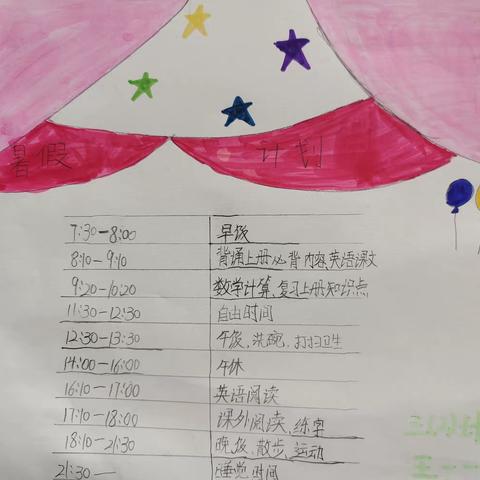 暑假 计划
7:30—8:00 早饭
8:10—9:10 背诵上册必背内容,英语课文
9:20—10:20 数学计算,复习上册知识点
11:30—12:30 自由时间
12:30—13:30 午饭、洗碗、打扫卫生
14:00—16:00 午休
16:10—17:00 英语阅读
17:10—18:00 课外阅读、练字
18:10—21:30 晚饭、散步、运动
21:30— 睡觉时间